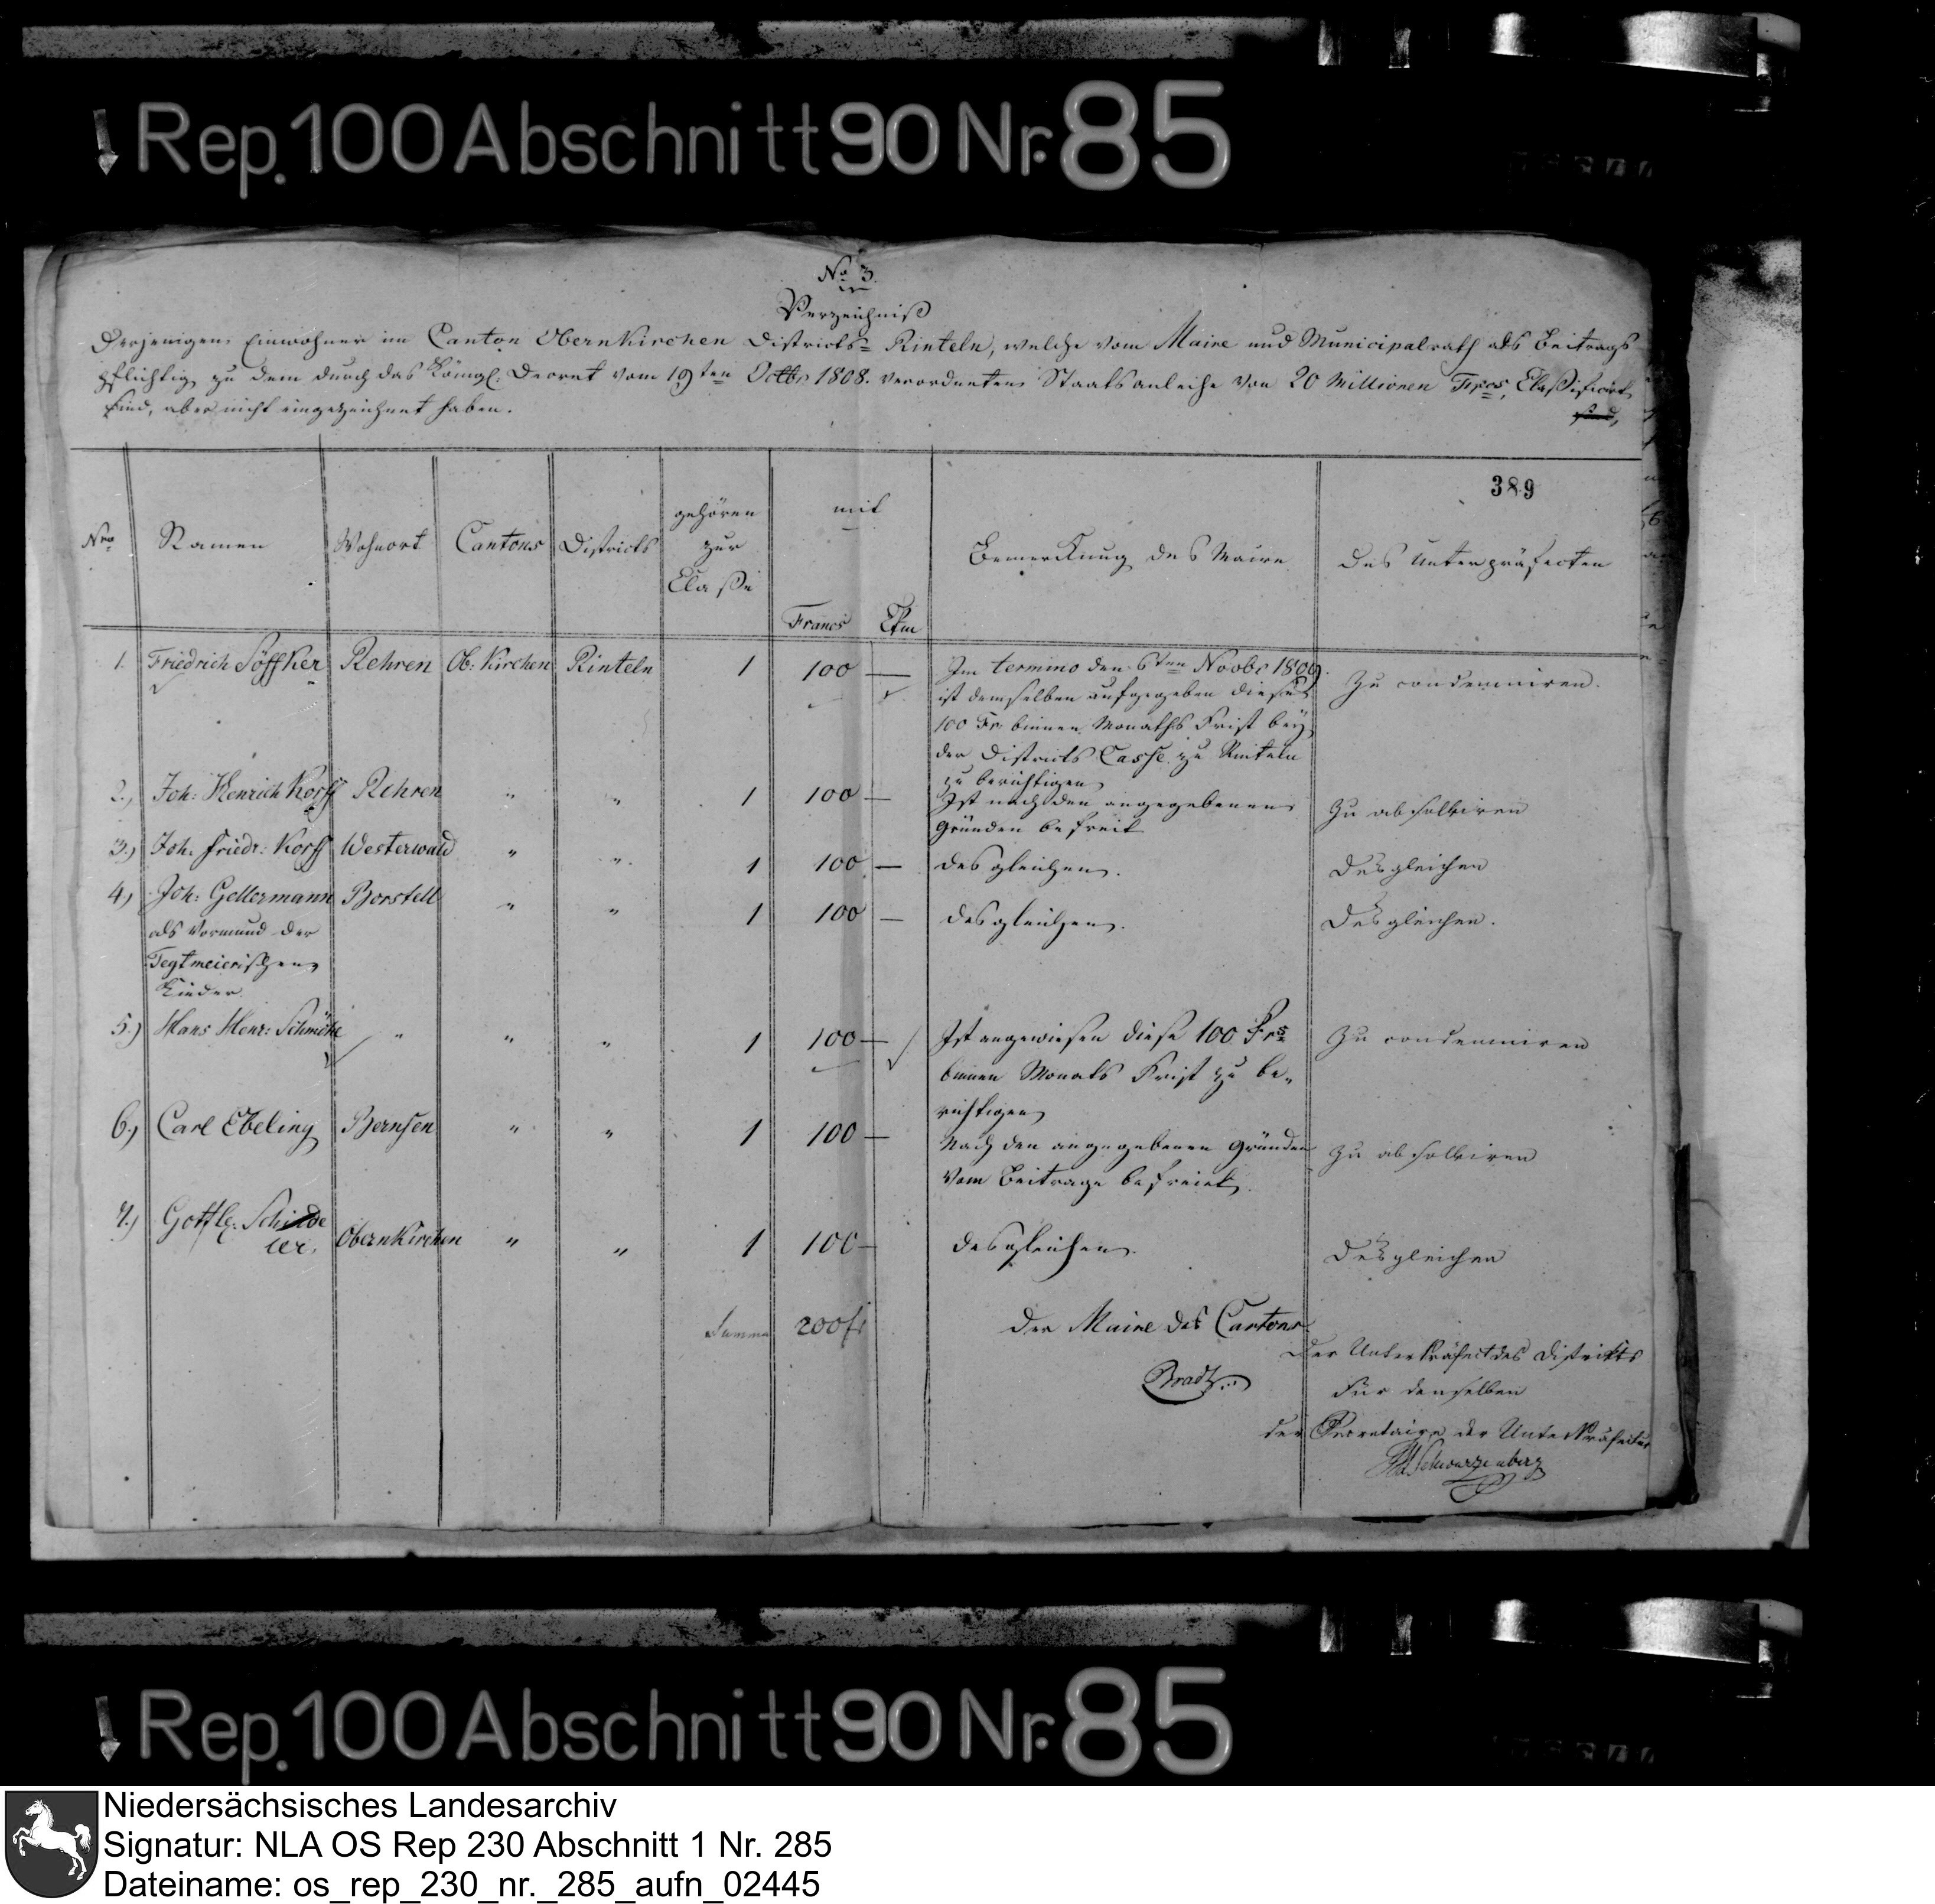 Rep. 100 Abschnitt 90 Nr. 85
No 3.
Verzeichniß
Derjenigen Einwohner im Canton Obernkirchen Districts Rinteln, welche vom Maire und Municipalrath als Beitrags
pflichtig zu dem durch das Königl. Decret vom 19ten Octbr 1808. verordneten Staatsanleihe von 20 Millionen Frcs, Claßificirt
sind, aber nicht eingezeichnet haben.
sind,
389
Nro Namen Wohnort Cantons Districts gehören zur Claße mit Francs Ctm Bemerkung des Maire des Unterpräfecten
1. Friedrich Söffker Rehren Ob: Kirchen Rinteln 1 100 — Im termino den 6ten Novbr 1809. Zu condemniren.
ist demselben aufgegeben diese
100 Fr binnen Monaths Frist bey
der Districts Casse zu Rinteln
zu berichtigen
2.) Joh: Henrich Korff Rehren " " 1 100 — Ist nach den angegebenen Zu absolviren
Gründen befreit
3.) Joh. Friedr: Korff Westerwald " " 1 100 — desgleichen. Desgleichen
4.) Joh: Gellermann Borstell " " 1 100 — desgleichen. Desgleichen.
als Vormund der
Tegtmeierischen
Kinder.
5.) Hans Henr: Schmöke " " " 1 100 — Ist angewiesen diese 100 Frs Zu condemniren
binnen Monats Frist zu be-
richtigen
6.) Carl Ebeling Bernsen " " 1 100 — Nach den angegebenen Gründen Zu absolviren
vom Beitrage befreiet.
7.) Gottl: Schinde
ler. Obernkirchen " " 1 100 — desgleichen. Desgleichen
Summa 200 fr
Der Maire des Cantons
Der Unterpräfect des Distrikts
Für denselben
der Secretaire der Unterpräfectur
Schwarzenberg
Rep. 100 Abschnitt 90 Nr. 85
Niedersächsisches Landesarchiv
Signatur: NLA OS Rep 230 Abschnitt 1 Nr. 285
Dateiname: os_rep_230_nr._285_aufn_02445